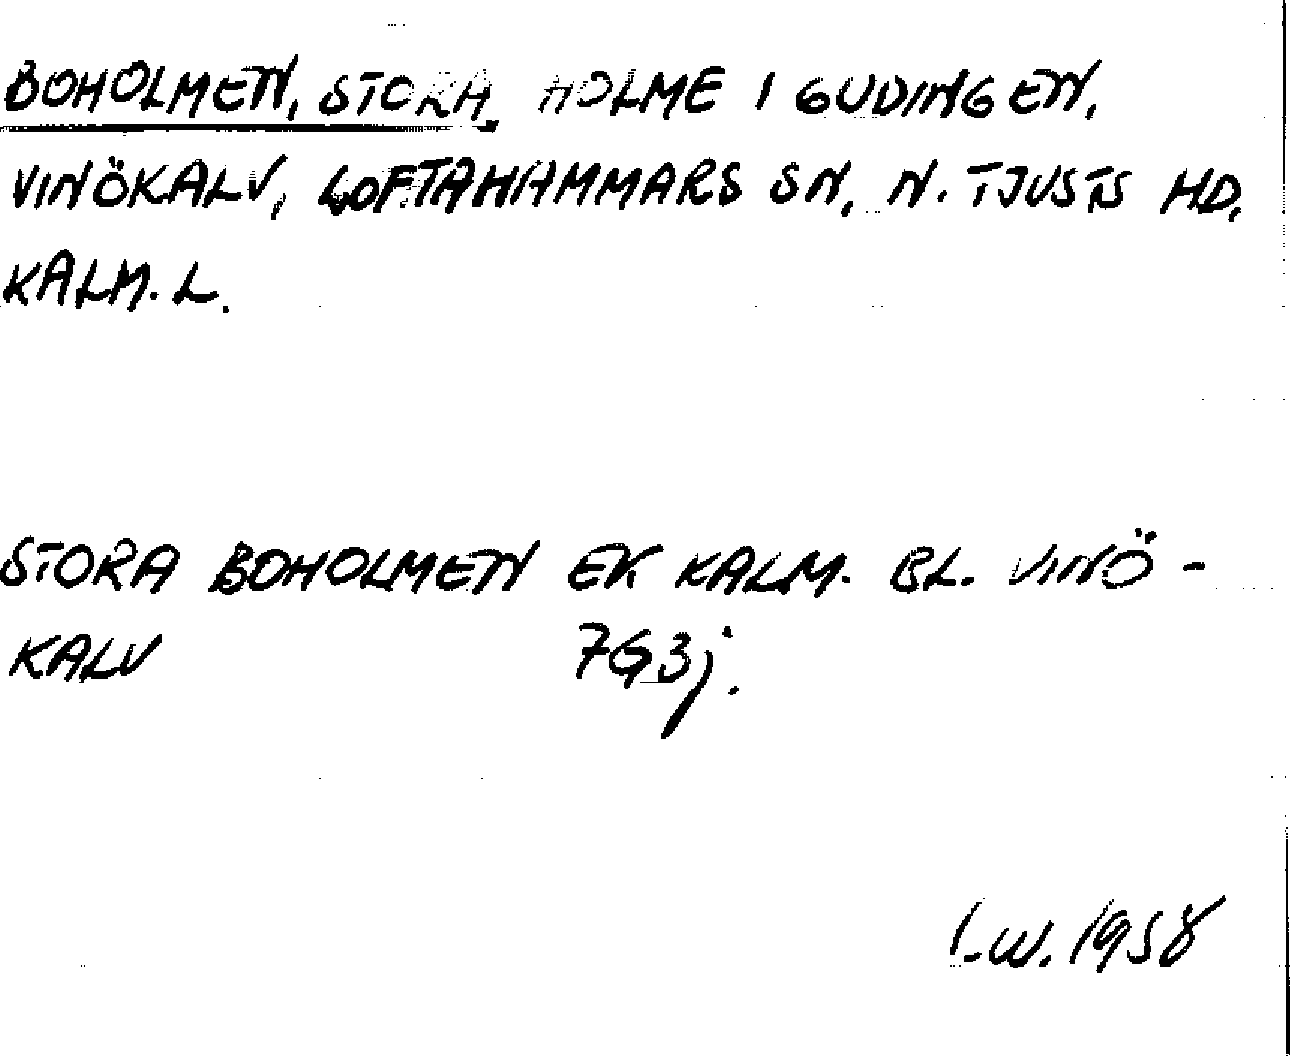 BOHOLMEN, STORA. HOLME I GUDINGEN,
VINÖKALV, LOFTAHAMMARS SN, N. TJUSTS HD,
KALM. L.
STORA BOHOLMEN EK KALM. BL. VINÖ-
KALV 7G3j.
I.W. 1958